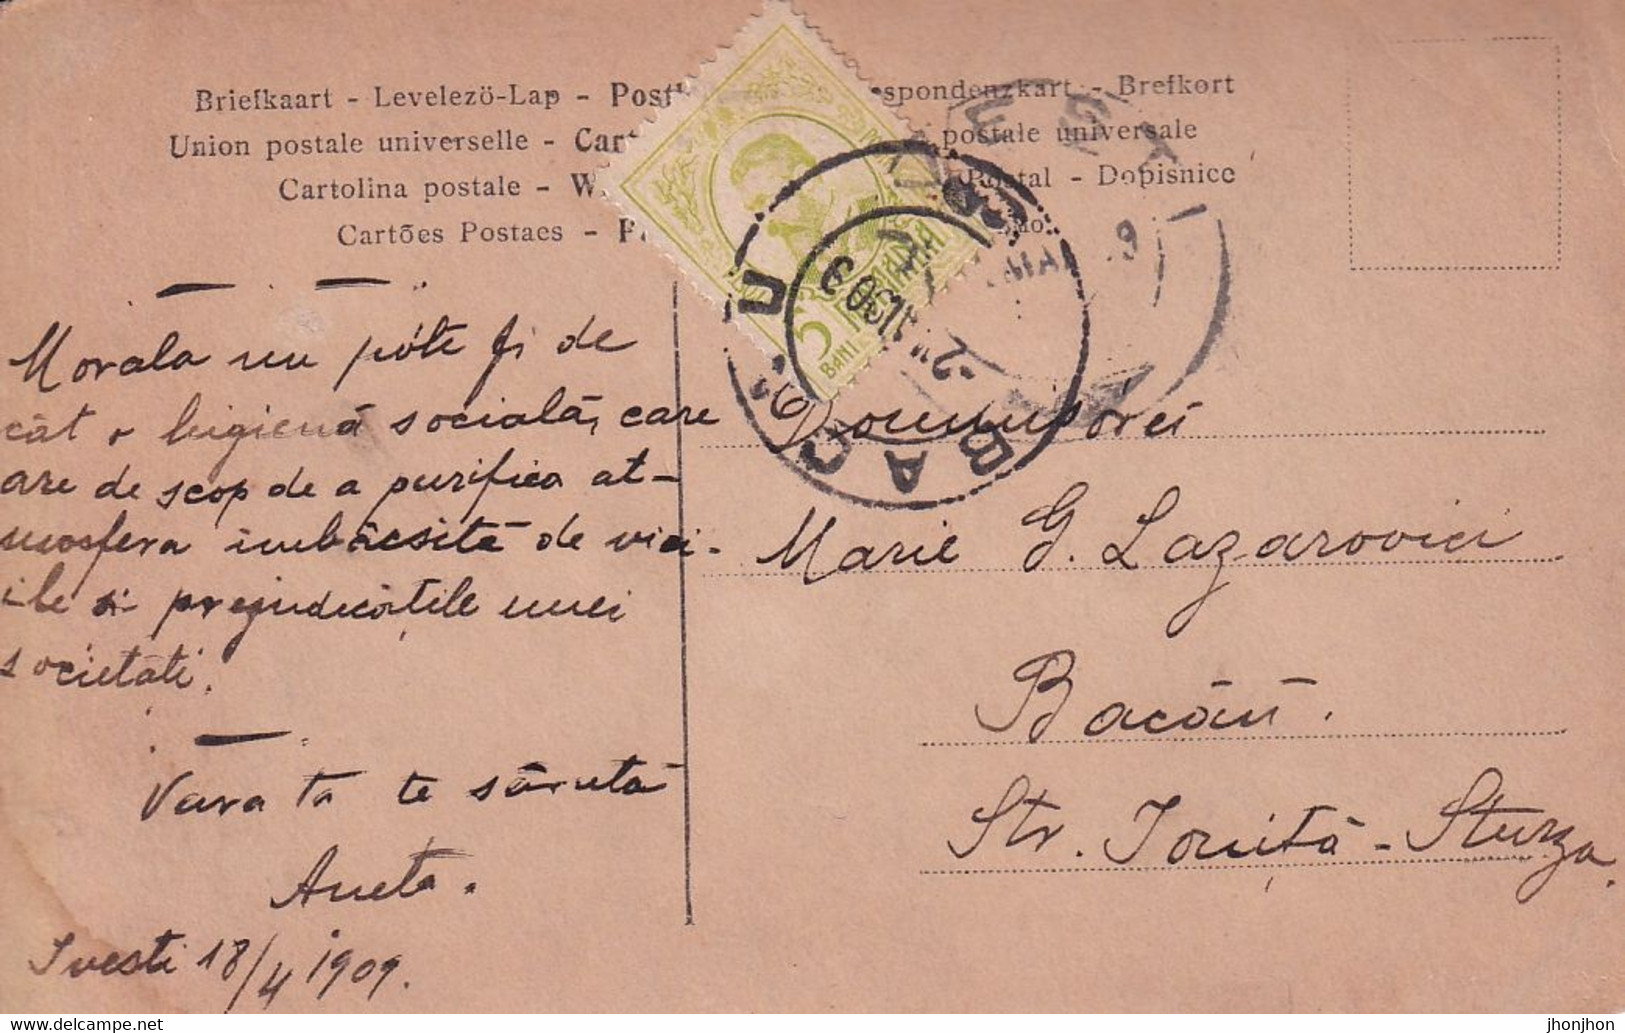 Briefkaart - Levelezö-Lap - Post spondenzkart - Brefkort
Union postale universelle - Car postale universale
Cartolina postale - W Postal - Dopisnice
Cartões Postaes - P
5 BANI
BACĂU
Morala nu póte fi de
cât o higienă socială, care
are de scop de a purifica at-
mosfera îmbâcsită de vici-
ile si prejudicățile unei
societati.
Vara ta te sărută
Aneta.
Ivesti 18/4 1909.
Domnisórei
Marie G. Lazarovici
Bacău.
Str. Ioniță-Sturza.
delcampe.net
jhonjhon